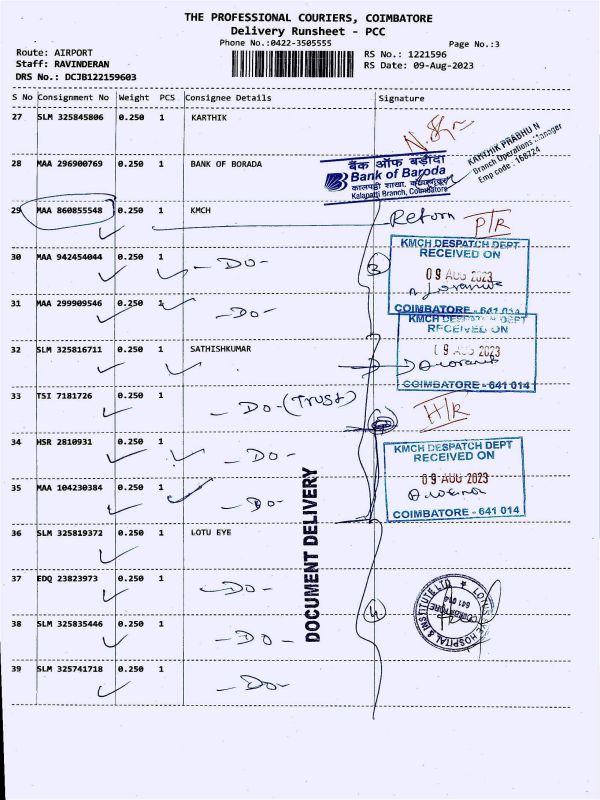 THE PROFESSIONAL COURIERS, COIMBATORE
Delivery Runsheet - PCC
Phone No.:0422-3505555
Page No.:3
Route: AIRPORT
RS No.: 1221596
Staff: RAVINDERAN
RS Date: 09-Aug-2023
DRS No.: DCJB122159603
S No Consignment No Weight PCS Consignee Details Signature
27 SLM 325845806 0.250 1 KARTHIK
KARTHIK PRABHU N
Branch Operations Manager
Emp code : 168724
28 MAA 296900769 0.250 1 BANK OF BORADA
बैंक ऑफ बड़ौदा
Bank of Baroda
Kalapatti Branch, Coimbatore
29 MAA 860855548 0.250 1 KMCH
Return P/R
KMCH DESPATCH DEPT
RECEIVED ON
09 AUG 2023
COIMBATORE - 641 014
30 MAA 942454044 0.250 1 - DO - 3
31 MAA 299909546 0.250 1 - DO -
KMCH DESPATCH DEPT
RECEIVED ON
09 AUG 2023
COIMBATORE - 641 014
32 SLM 325816711 0.250 1 SATHISHKUMAR
33 TSI 7181726 0.250 1 - DO - (TRUST)
H/R
34 HSR 2810931 0.250 1 - DO -
KMCH DESPATCH DEPT
RECEIVED ON
09 AUG 2023
COIMBATORE - 641 014
35 MAA 104230384 0.250 1 - DO -
DOCUMENT DELIVERY
36 SLM 325819372 0.250 1 LOTU EYE
37 EDQ 23823973 0.250 1 - DO -
LOTUS EYE HOSPITAL & INSTITUTE LTD
COIMBATORE
641 014
38 SLM 325835446 0.250 1 - DO - 4
39 SLM 325741718 0.250 1 - DO -